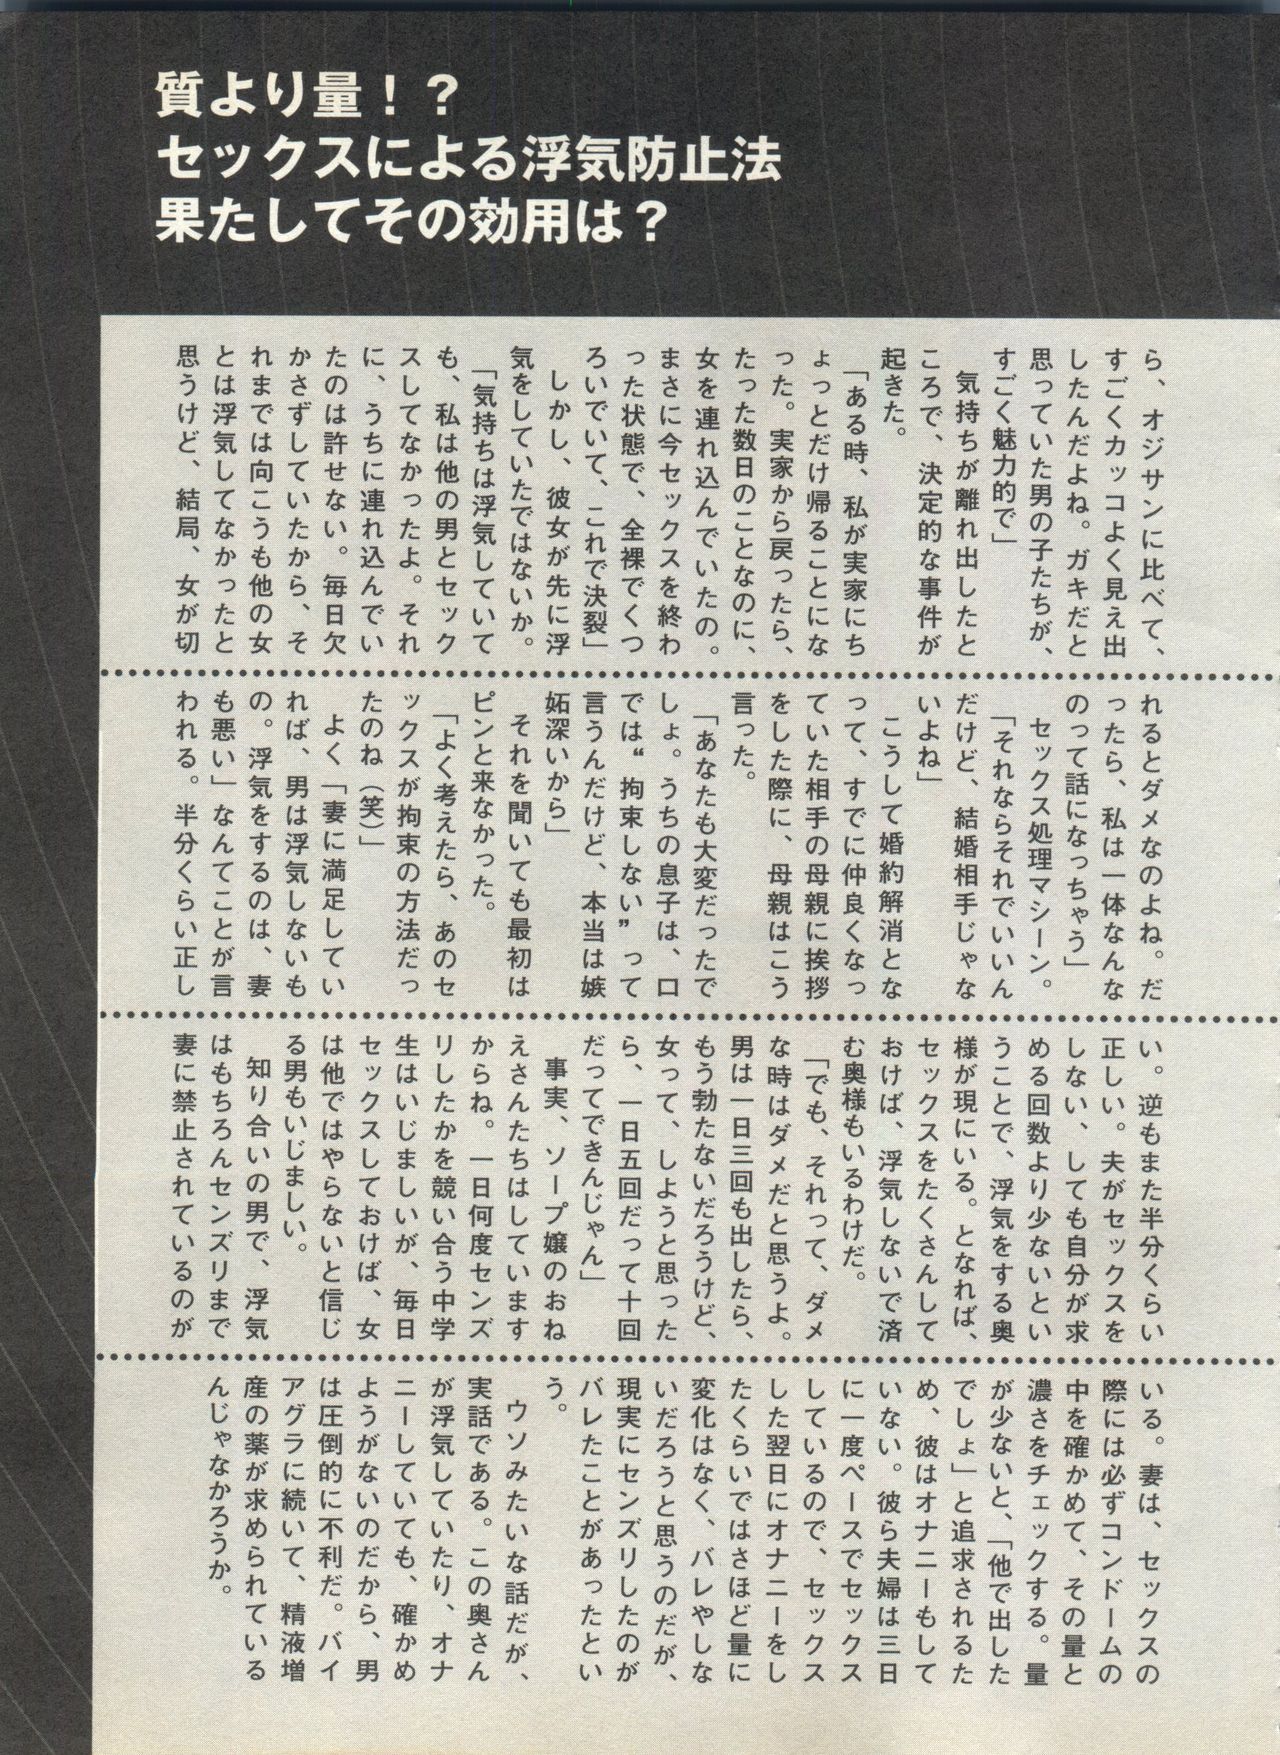 質より量！？
セックスによる浮気防止法
果たしてその効用は？
ら、オジサンに比べて、
すごくカッコよく見え出
したんだよね。ガキだと
思っていた男の子たちが、
すごく魅力的で」
　気持ちが離れ出したと
ころで、決定的な事件が
起きた。
「ある時、私が実家にち
ょっとだけ帰ることにな
った。実家から戻ったら、
たった数日のことなのに、
女を連れ込んでいたの。
まさに今セックスを終わ
った状態で、全裸でくつ
ろいでいて、これで決裂」
　しかし、彼女が先に浮
気をしていたではないか。
「気持ちは浮気していて
も、私は他の男とセック
スしてなかったよ。それ
に、うちに連れ込んでい
たのは許せない。毎日欠
かさずしていたから、そ
れまでは向こうも他の女
とは浮気してなかったと
思うけど、結局、女が切
れるとダメなのよね。だ
ったら、私は一体なんな
のって話になっちゃう」
　セックス処理マシーン。
「それならそれでいいん
だけど、結婚相手じゃな
いよね」
　こうして婚約解消とな
って、すでに仲良くなっ
ていた相手の母親に挨拶
をした際に、母親はこう
言った。
「あなたも大変だったで
しょ。うちの息子は、口
では“拘束しない”って
言うんだけど、本当は嫉
妬深いから」
　それを聞いても最初は
ピンと来なかった。
「よく考えたら、あのセ
ックスが拘束の方法だっ
たのね（笑）」
　よく「妻に満足してい
れば、男は浮気しないも
の。浮気をするのは、妻
も悪い」なんてことが言
われる。半分くらい正し
い。逆もまた半分くらい
正しい。夫がセックスを
しない、しても自分が求
める回数より少ないとい
うことで、浮気をする奥
様が現にいる。となれば、
セックスをたくさんして
おけば、浮気しないで済
む奥様もいるわけだ。
「でも、それって、ダメ
な時はダメだと思うよ。
男は一日三回も出したら、
もう勃たないだろうけど、
女って、しようと思った
ら、一日五回だって十回
だってできんじゃん」
　事実、ソープ嬢のおね
えさんたちはしています
からね。一日何度センズ
リしたかを競い合う中学
生はいじましいが、毎日
セックスしておけば、女
は他ではやらないと信じ
る男もいじましい。
　知り合いの男で、浮気
はもちろんセンズリまで
妻に禁止されているのが
いる。妻は、セックスの
際には必ずコンドームの
中を確かめて、その量と
濃さをチェックする。量
が少ないと、「他で出した
でしょ」と追求されるた
め、彼はオナニーもして
いない。彼ら夫婦は三日
に一度ペースでセックス
しているので、セックス
した翌日にオナニーをし
たくらいではさほど量に
変化はなく、バレやしな
いだろうと思うのだが、
現実にセンズリしたのが
バレたことがあったとい
う。
　ウソみたいな話だが、
実話である。この奥さん
が浮気していたり、オナ
ニーしていても、確かめ
ようがないのだから、男
は圧倒的に不利だ。バイ
アグラに続いて、精液増
産の薬が求められている
んじゃなかろうか。